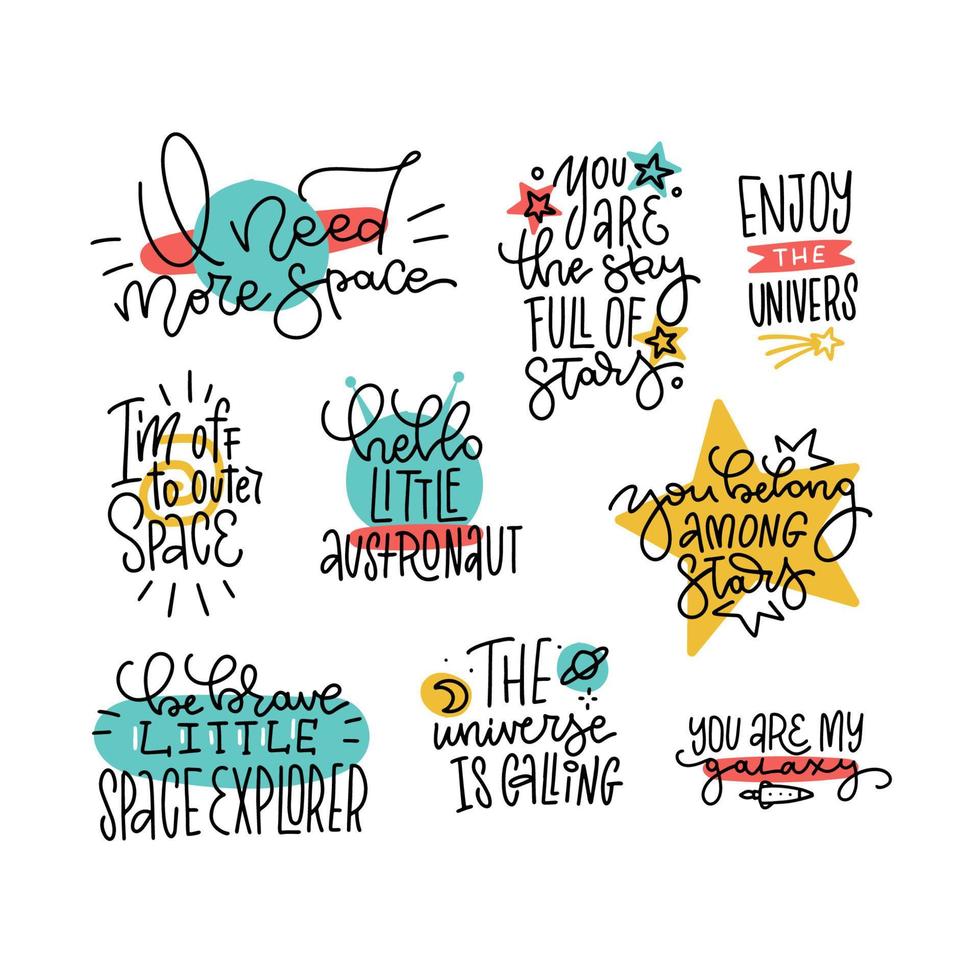 I need
more space
You
ARE
the sky
FULL OF
stars
ENJOY
THE
UNIVERS
I'm off
to outer
SPACE
hello
LITTLE
AUSTRONAUT
you belong
AMONG
stars
be brave
LITTLE
SPACE EXPLORER
THE
universe
IS CALLING
YOU ARE MY
galaxy